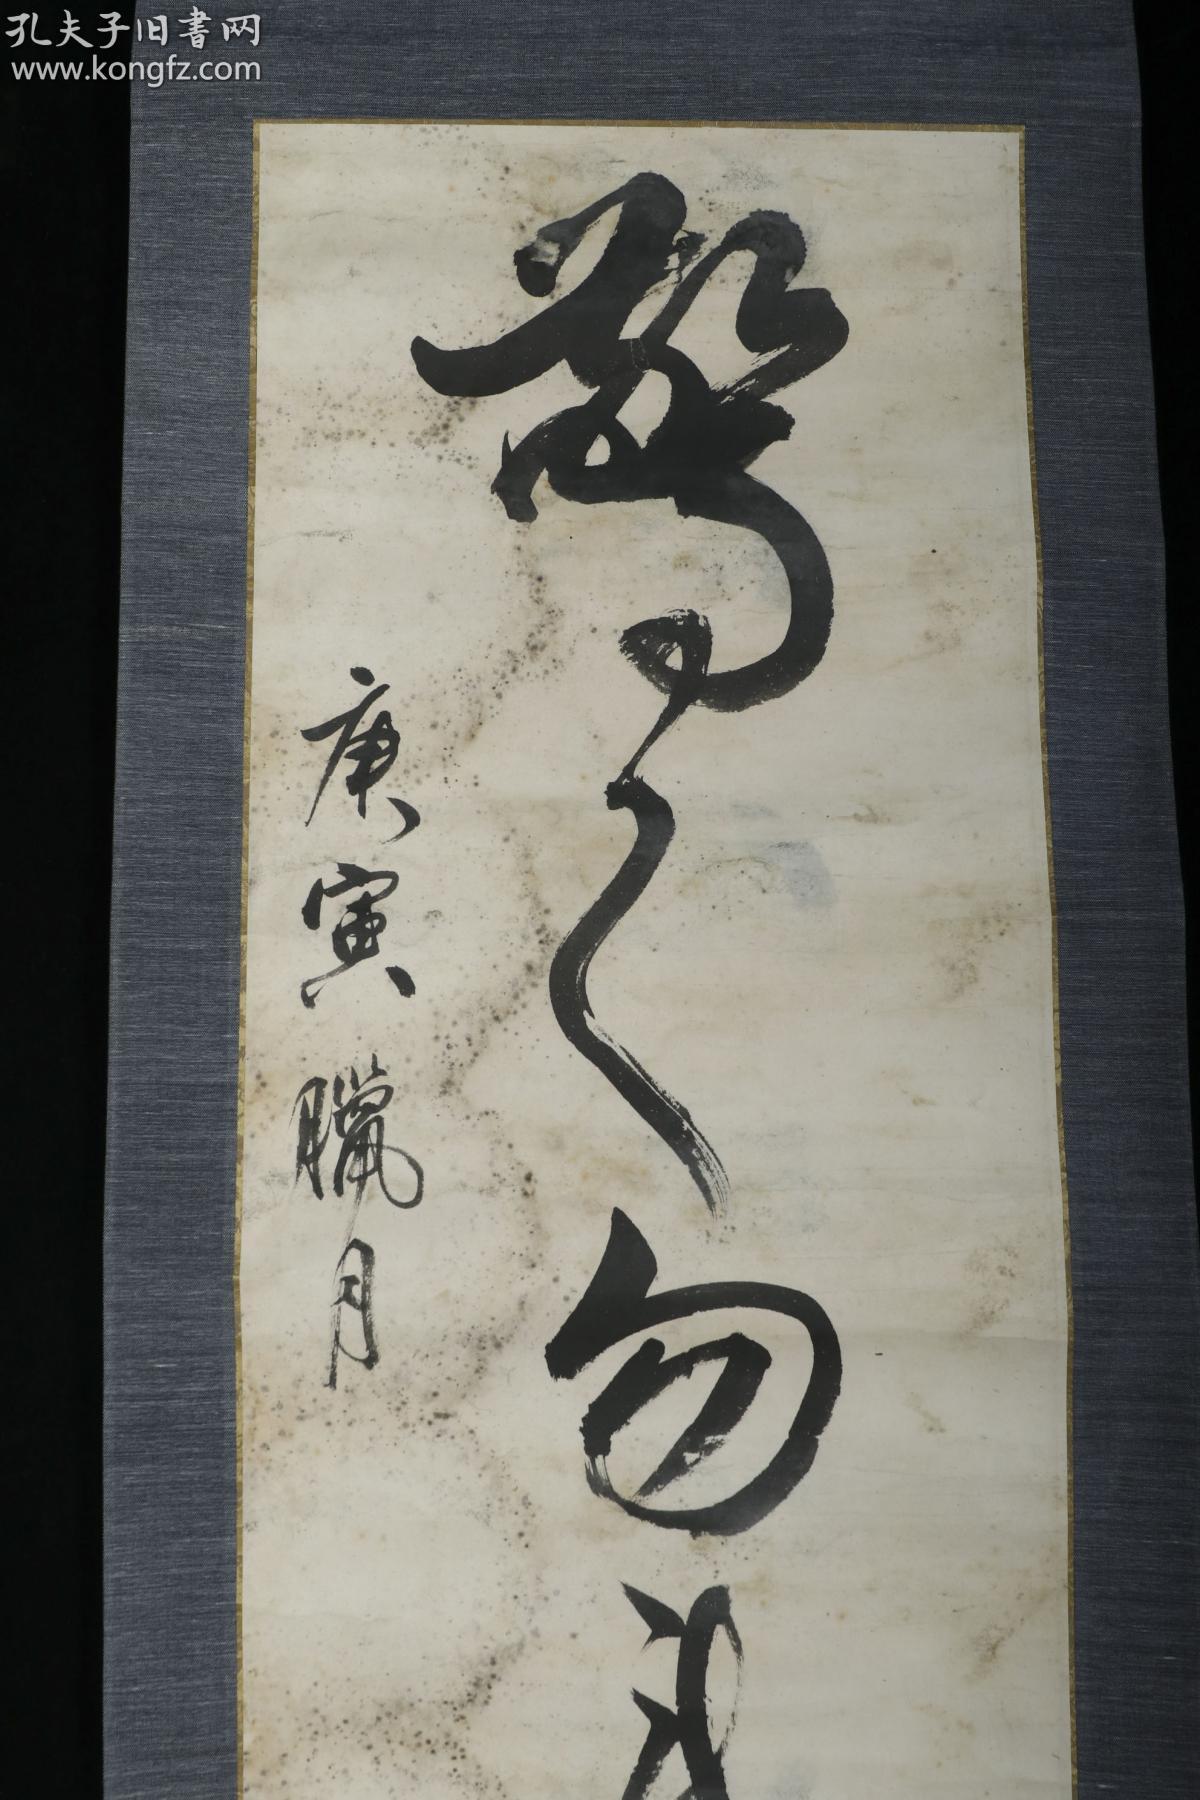 孔夫子旧書网
www.kongfz.com
警之勿
庚寅臘月